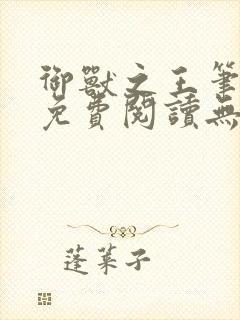 御獸之王筆
免費閱讀無
蓬萊子